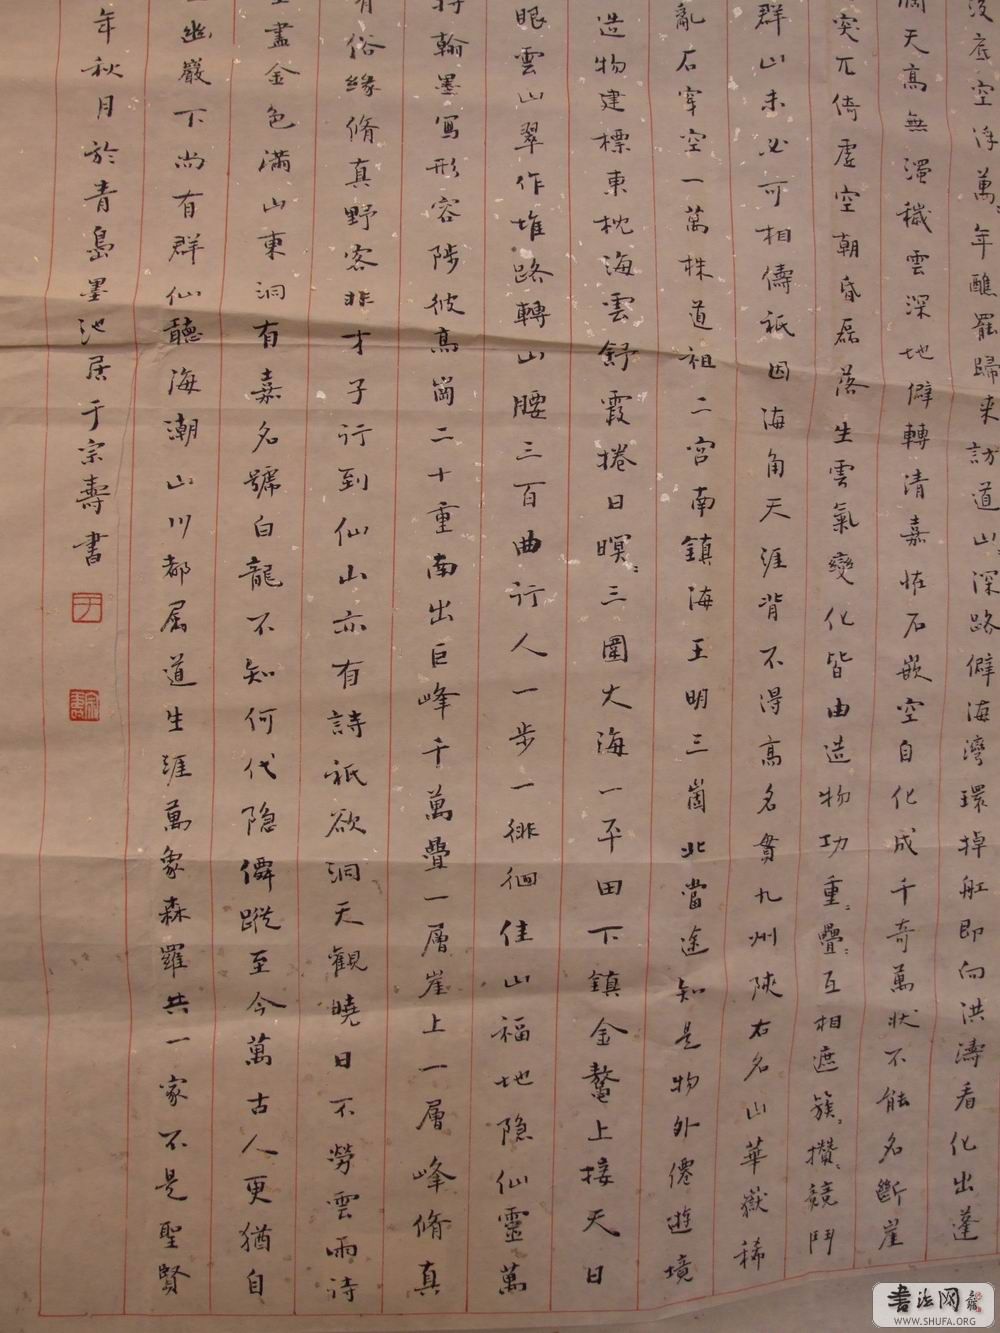 後底空浮萬〻年醮罷歸来訪道山〻深路僻海灣環掉舡即向洪濤看化出蓬
洞天高無濁穢雲深地僻轉清嘉恠石嵌空自化成千奇萬狀不能名斷崖
突兀倚虛空朝昏磊落生雲氣變化皆由造物功重〻疊〻互相遮簇〻攢〻競鬥
群山未必可相儔祇因海角天涯背不得高名貫九州陝右名山華嶽稀
亂石穿空一萬株道祖二宮南鎮海王明三崮北當途知是物外僊遊境
造物建標東枕海雲舒霞捲日暝〻三圍大海一平田下鎮金鰲上接天日
眼雲山翠作堆路轉山腰三百曲行人一步一徘徊佳山福地隐仙靈萬
翰墨寫形容陟彼高崗二十重南出巨峰千萬疊一層崖上一層峰脩真
有俗緣脩真野客非才子行到仙山亦有詩祇欲洞天觀曉日不勞雲雨待
盡金色滿山東洞有嘉名號白龍不知何代隐僊蹤至今萬古人更猶自
幽巖下尚有群仙聽海潮山川都屬道生涯萬象森羅共一家不是聖賢
年秋月於青島墨池居于宗壽書
于
宗壽
書法网
WWW.SHUFA.ORG